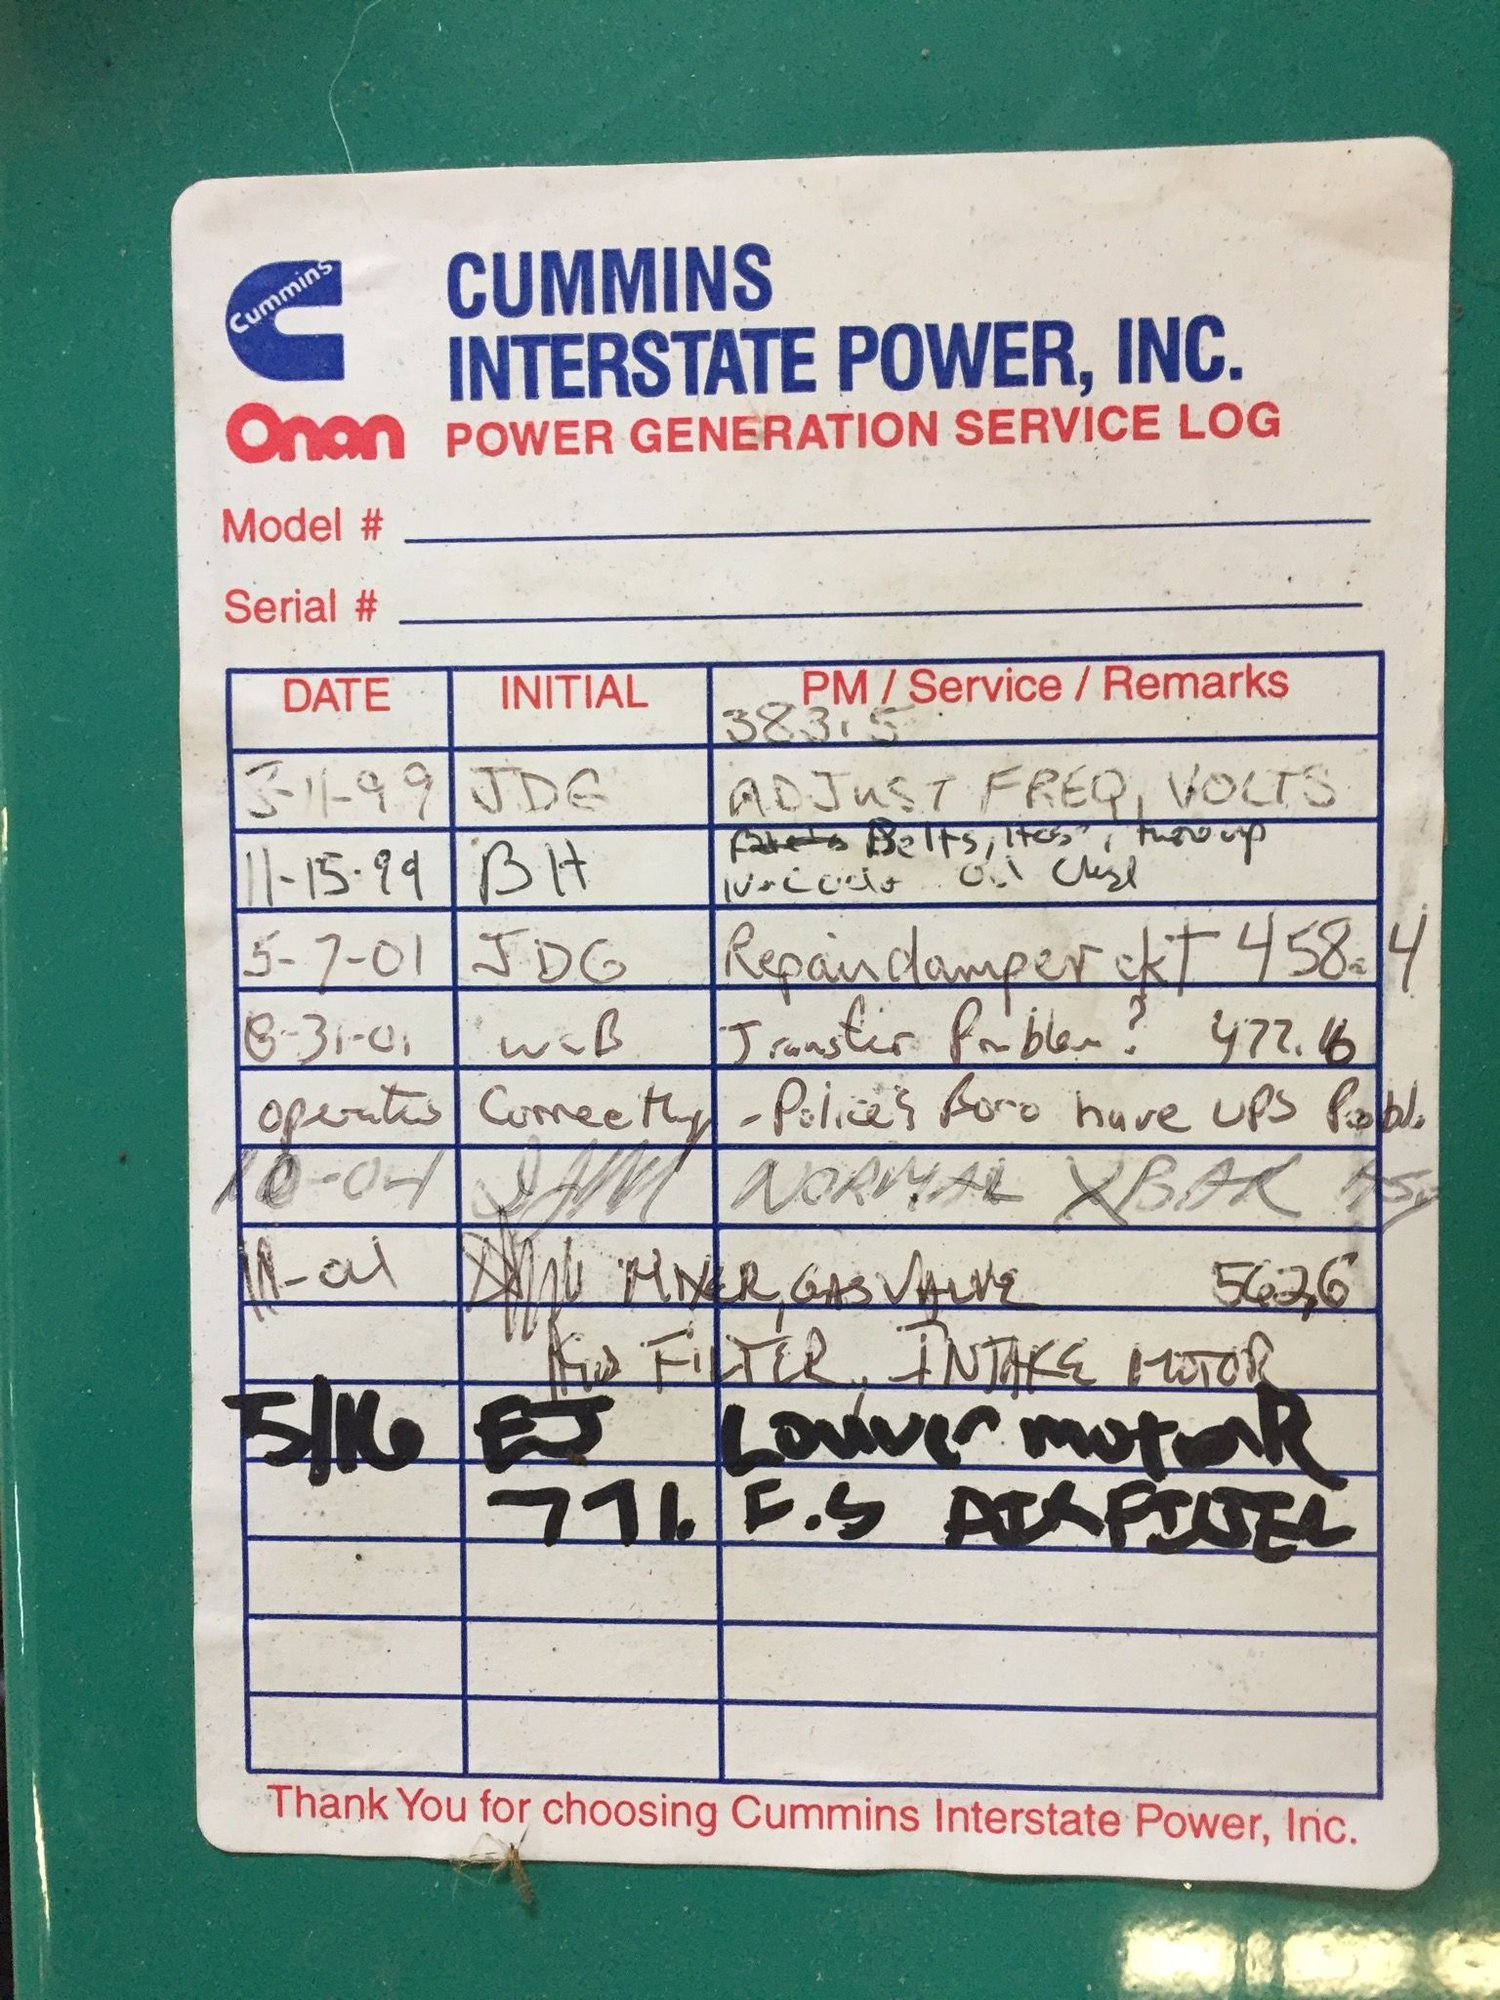 Cummins
CUMMINS
INTERSTATE POWER, INC.
Onan POWER GENERATION SERVICE LOG
Model #
Serial #
DATE INITIAL PM / Service / Remarks
383.5
5-11-99 JDG ADJUST FREQ, VOLTS
11-15-99 BH Belts,
oil
5-7-01 JDG Repair damper ckt 458.4
8-31-01 WCB Transfer Problem? 477.
operates Correctly - Police's Boro have UPS Probl.
10-04 NORMAL XBAR
11-04 MIXER, GAS VALVE 562.6
FILTER, INTAKE MOTOR
5/16 EJ Louver motor
771. F.S AIRFILTER
Thank You for choosing Cummins Interstate Power, Inc.